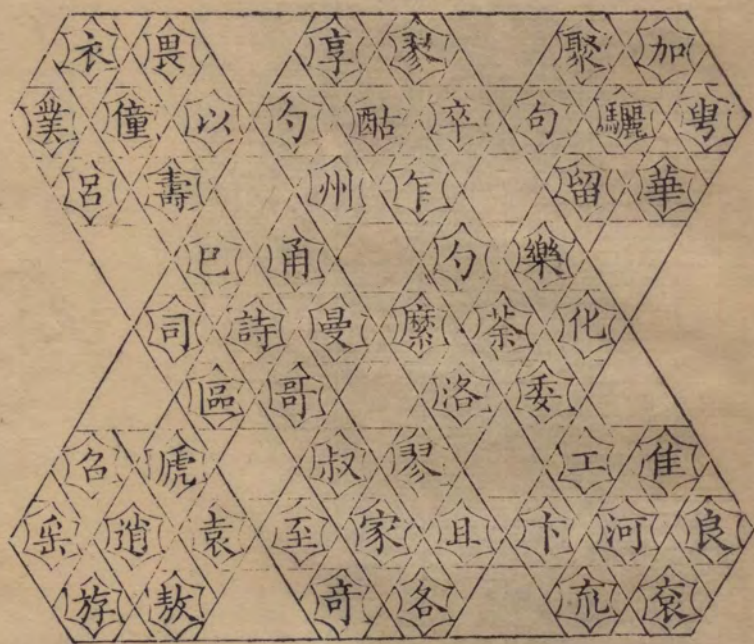 衣畏享翏聚加
業僮以勺酤卒句驪甹
呂壽州乍留華
巴甬勺樂
司詩曼縻荼化
區哥洛委
召虒叔翏工隹
逍袁至家且卞河良
斿敖奇各㐬袞